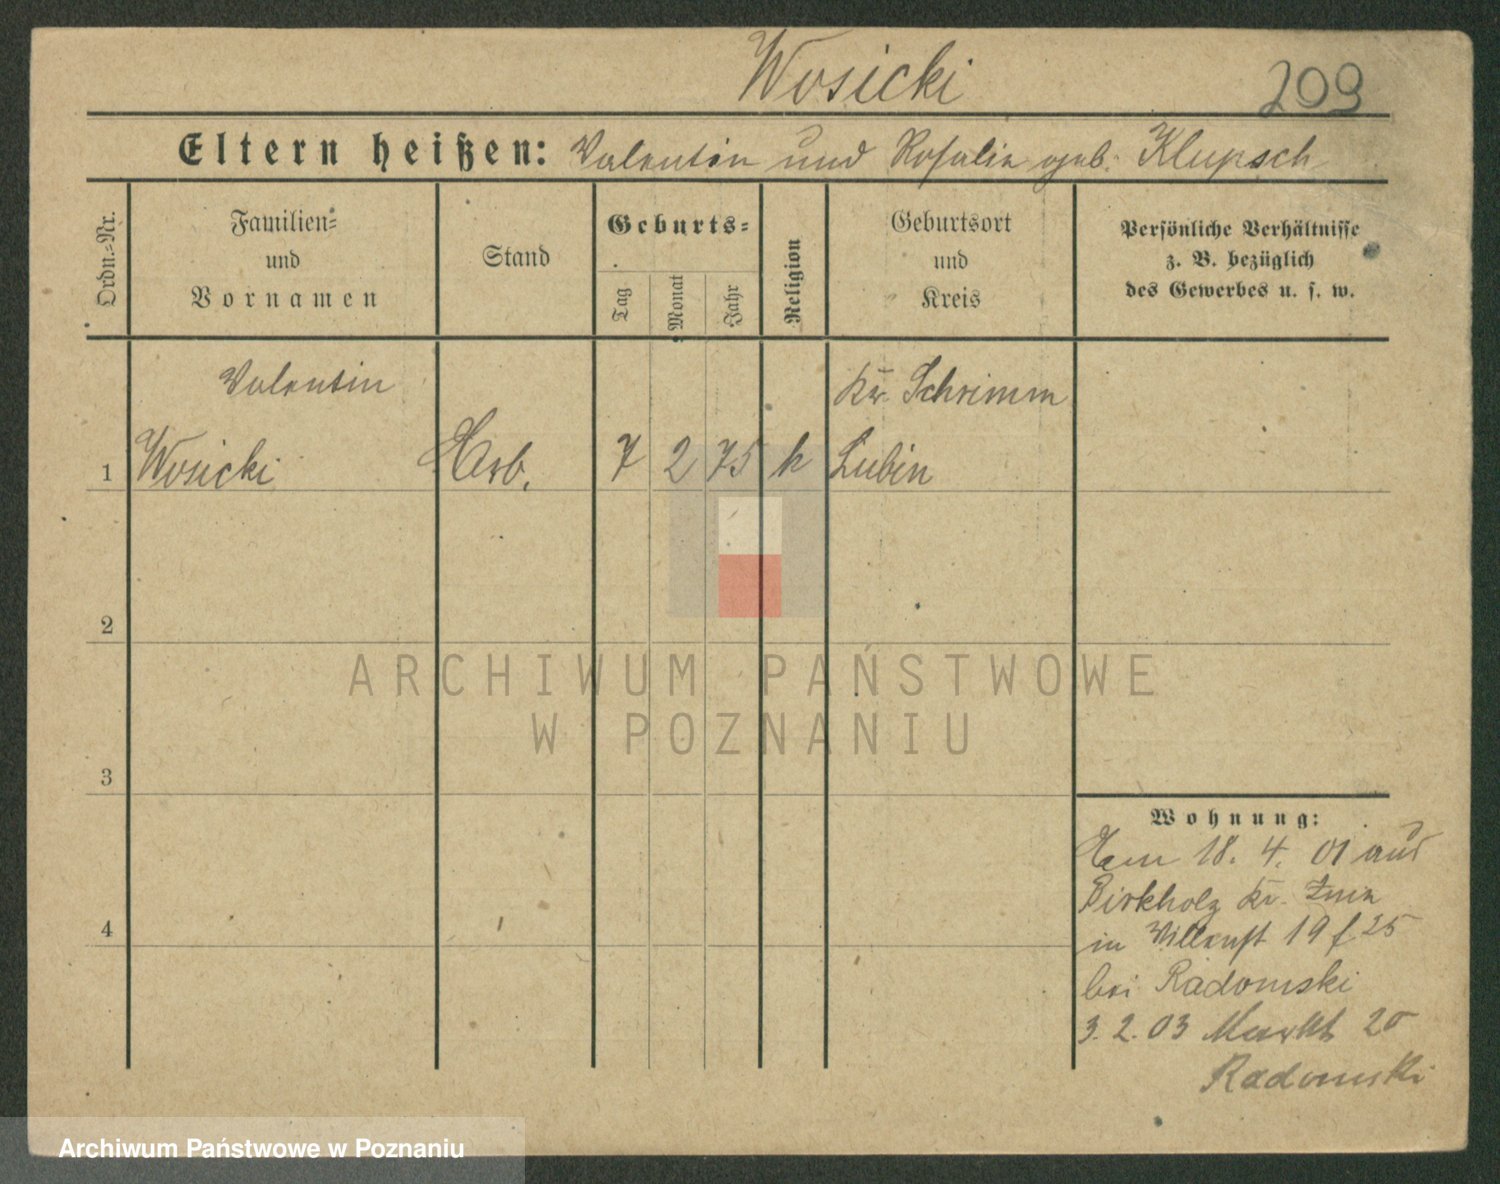 Wosicki
209
Eltern heißen: Valentin und Rosalie geb. Klupsch
Ordn.-Nr.
Familien-
und
Vornamen
Stand
Geburts-
Tag
Monat
Jahr
Religion
Geburtsort
und
Kreis
Persönliche Verhältnisse
z. B. bezüglich
des Gewerbes u. s. w.
Valentin
Kr. Schrimm
1 Wosicki Arb. 7 2 75 k Lubin
2
ARCHIWUM PAŃSTWOWE
W POZNANIU
3
Wohnung:
18. 4. 01 aus
Birkholz Kr. Znin
4
in 19 f 25
bei Radomski
3. 2. 03 Markt 20
Radomski
Archiwum Państwowe w Poznaniu